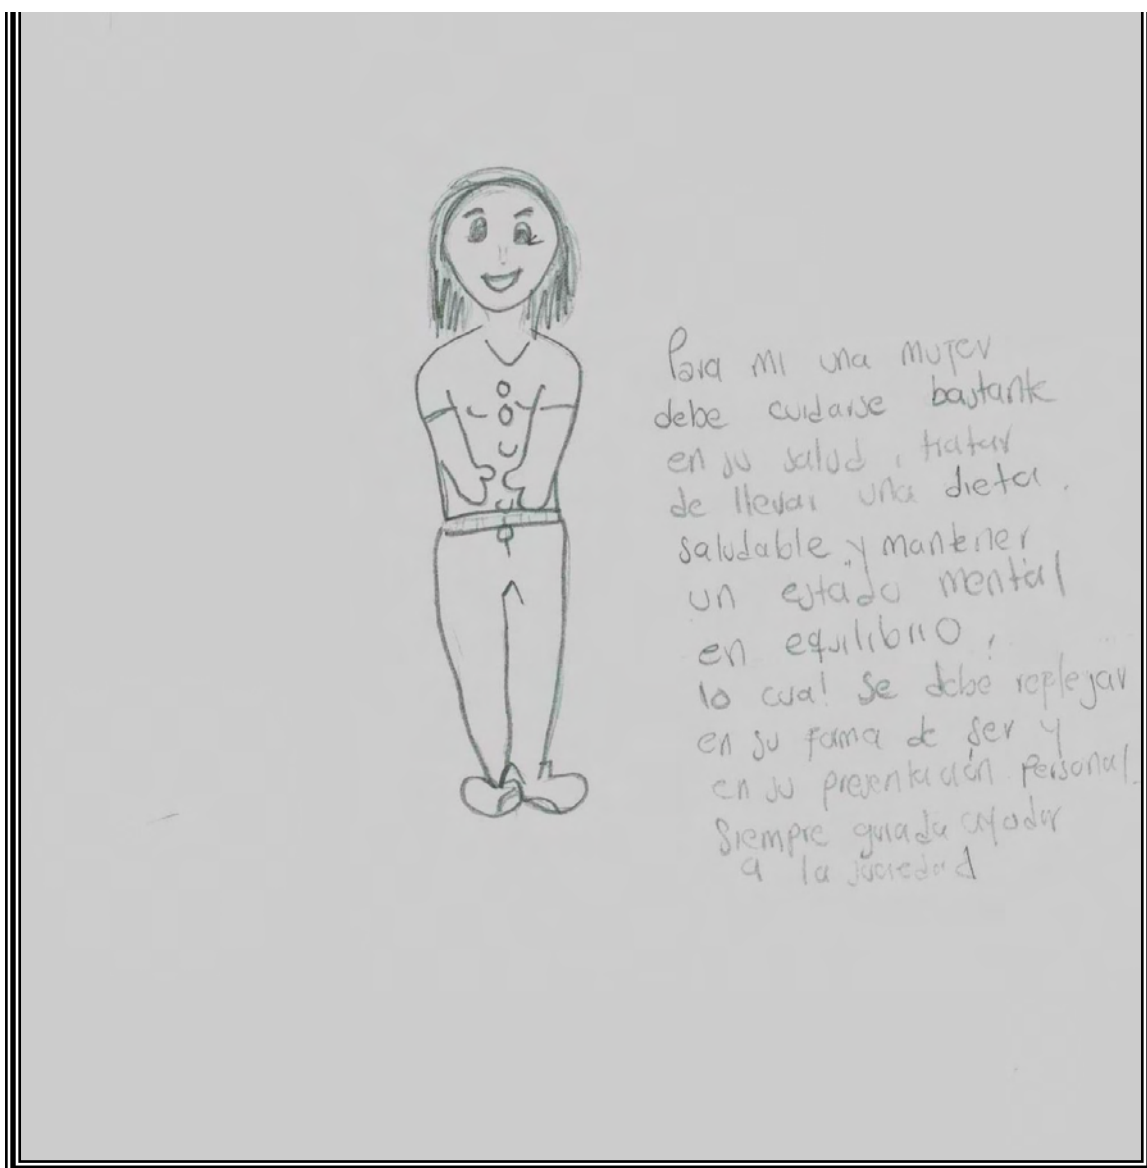 Para mi una mujer
debe cuidarse bastante
en su salud, tratar
de llevar una dieta.
saludable y mantener
un estado mental
en equilibrio,
lo cual se debe replejar
en su foma de ser y
en su presentación personal.
Siempre guiada ayudar
a la sociedad